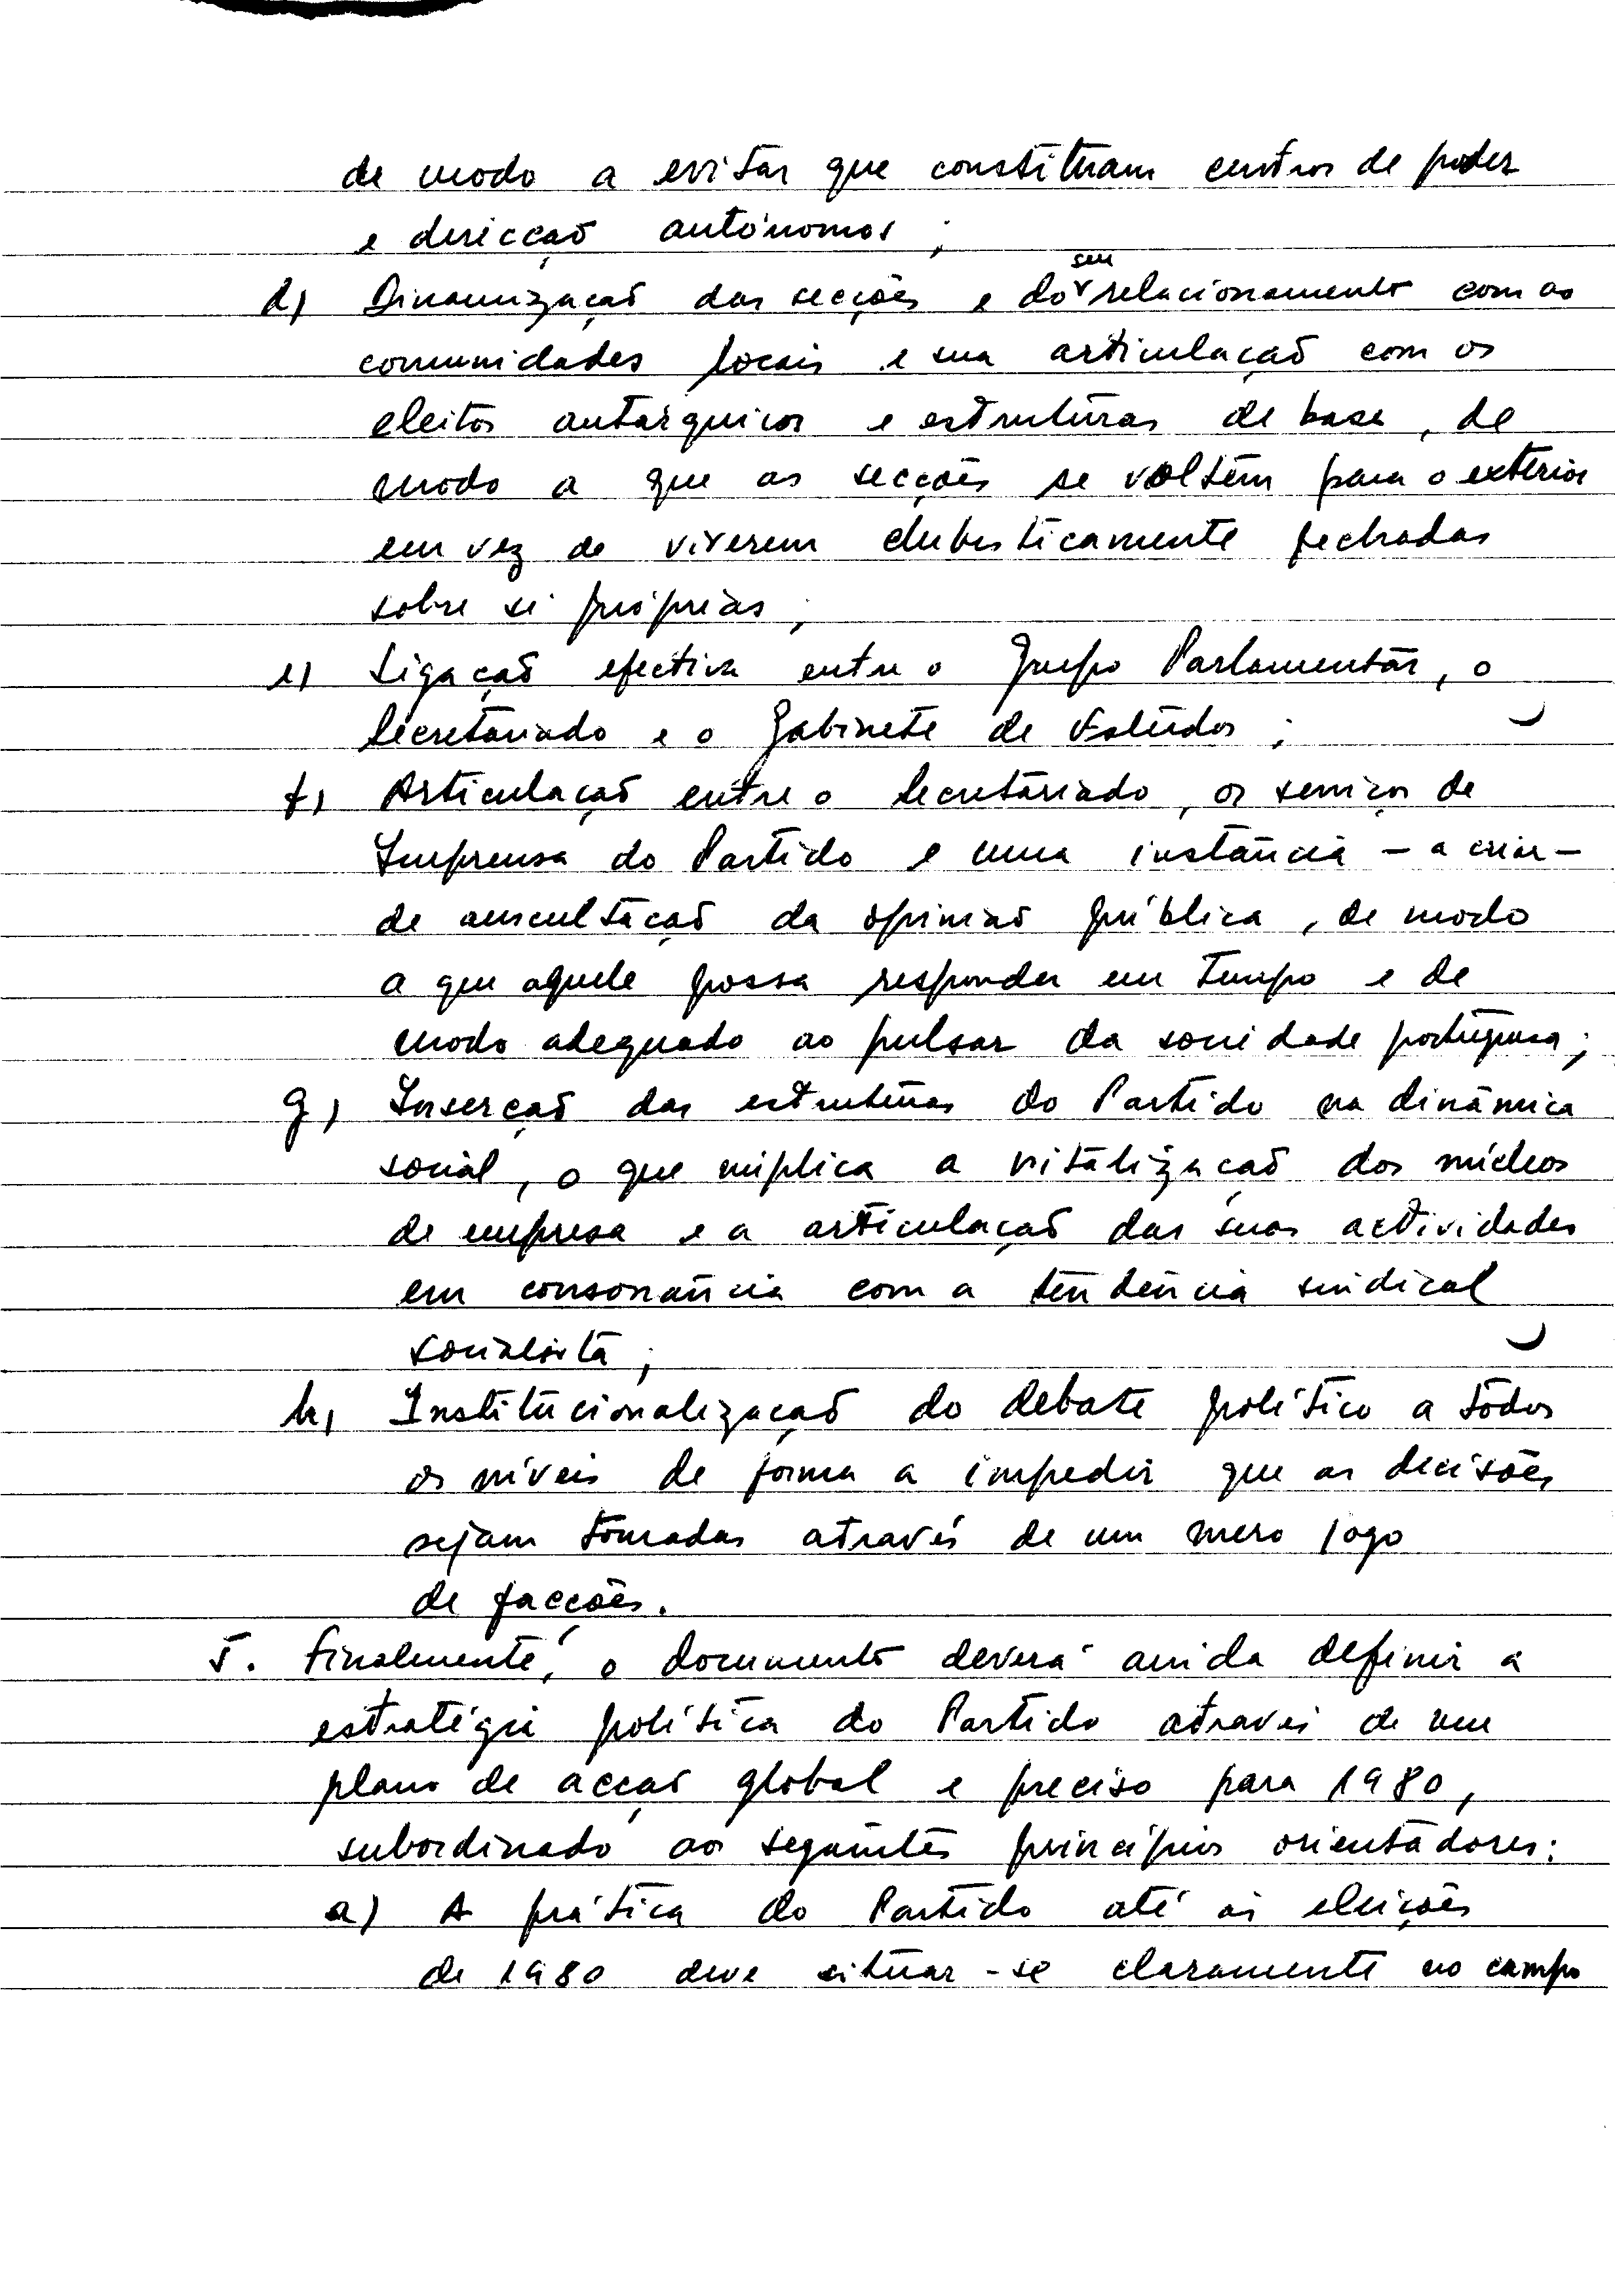 de modo a evitar que constituam centros de poder
e direcção autónomos ;
d) Dinamização das secções e do seu relacionamento com as
comunidades locais e sua articulação com os
eleitos autárquicos e estruturas de base, de
modo a que as secções se voltem para o exterior
em vez de viverem clubisticamente fechadas
sobre si próprias ;
e) Ligação efectiva entre o Grupo Parlamentar, o
Secretariado e o Gabinete de Estudos ;
f) Articulação entre o Secretariado, os serviços de
Imprensa do Partido e uma instância - a criar -
de auscultação da opinião pública, de modo
a que aquele possa responder em tempo e de
modo adequado ao pulsar da sociedade portuguesa ;
g) Inserção das estruturas do Partido na dinâmica
social, o que implica a vitalização dos núcleos
de empresa e a articulação das suas actividades
em consonância com a tendência sindical
socialista ;
h) Institucionalização do debate político a todos
os níveis de forma a impedir que as decisões
sejam tomadas através de um mero jogo
de facções.
5. Finalmente, o documento deverá ainda definir a
estratégia política do Partido através de um
plano de acção global e preciso para 1980,
subordinado aos seguintes princípios orientadores:
a) A prática do Partido até às eleições
de 1980 deve situar-se claramente no campo